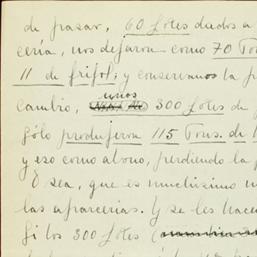 de pasar, 60 lotes dados a
cería, nos dejaron como 70 Ton
11 de frijol; y conservamos la p
cambio, unos 300 lotes de
sólo produjeron 115 Tons. de
y eso como abono, perdiendo la
O sea, que es muchísimo
las aparcerías. Y se les hace
si los 300 lotes